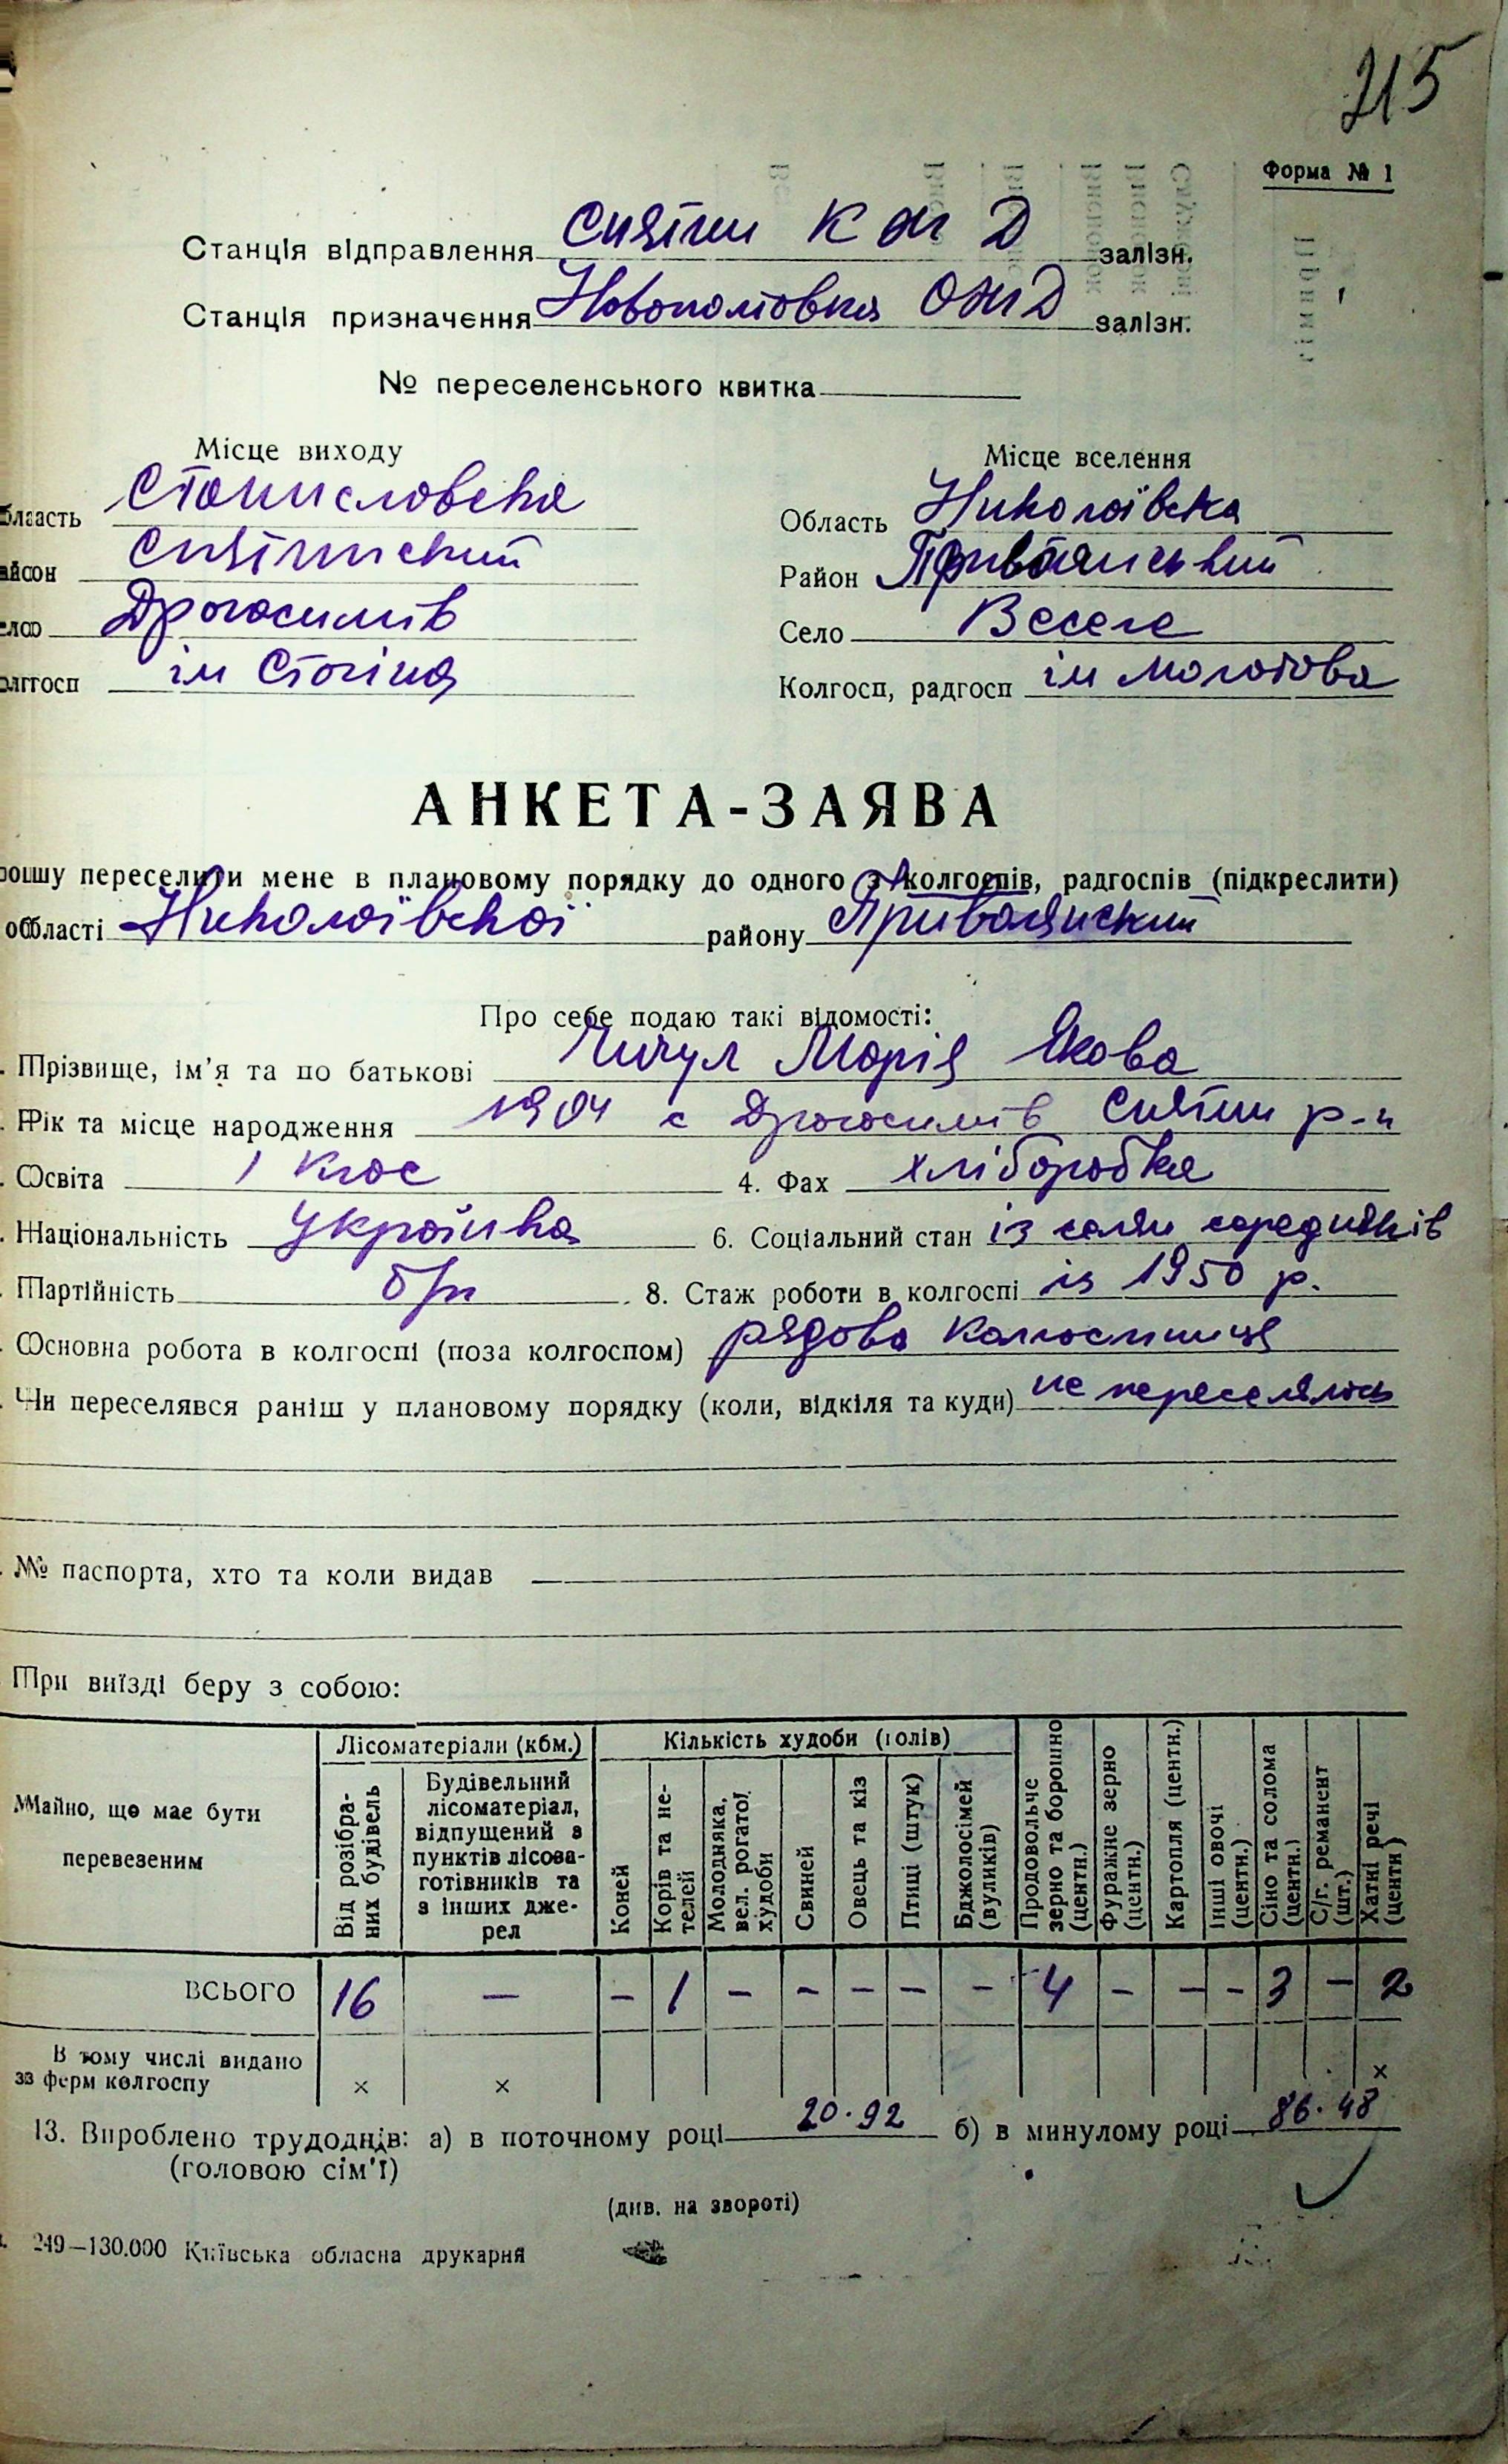 215
Форма № 1
Станція відправлення Снятин К Ж Д залізн.
Станція призначення Новополтовка ОЖД залізн.
№ переселенського квитка
Місце виходу
Місце вселення
бласть Станиславська
Область Николаївска
айон Снятинский
Район Привольнський
ело Драгасимів
Село Веселе
олгосп ім Сталіна
Колгосп, радгосп ім Молотова
АНКЕТА-ЗАЯВА
рошу переселити мене в плановому порядку до одного з колгоспів, радгоспів (підкреслити)
області Николаївської району Привольнский
Про себе подаю такі відомості:
Прізвище, ім'я та по батькові Чичул Марія Якова
Рік та місце народження 1904 с Драгасимів Снятин р-н
Освіта 1 клас 4. Фах хліборобка
Національність Українка 6. Соціальний стан із селян середняків
Партійність б/п 8. Стаж роботи в колгоспі із 1950 р.
Основна робота в колгоспі (поза колгоспом) рядова колгоспниця
Чи переселявся раніш у плановому порядку (коли, відкіля та куди) не переселялась
№ паспорта, хто та коли видав
При виїзді беру з собою:
Майно, що має бути перевезеним
Лісоматеріали (кбм.)
Кількість худоби (голів)
Від розібраних будівель
Будівельний лісоматеріал, відпущений з пунктів лісозаготівників та з інших джерел
Коней
Корів та нетелей
Молодняка, вел. рогатої худоби
Свиней
Овець та кіз
Птиці (штук)
Бджолосімей (вуликів)
Продовольче зерно та борошно (центн.)
Фуражне зерно (центн.)
Картопля (центн.)
Інші овочі (центн.)
Сіно та солома (центн.)
С/г. реманент (шт.)
Хатні речі (центн)
ВСЬОГО 16 — – 1 – – – – – 4 – – – 3 – 2
В тому числі видано
за ферм колгоспу × × ×
13. Вироблено трудоднів: а) в поточному році 20.92 б) в минулому році 86.48
(головою сім'ї)
(див. на звороті)
249—130.000 Київська обласна друкарня